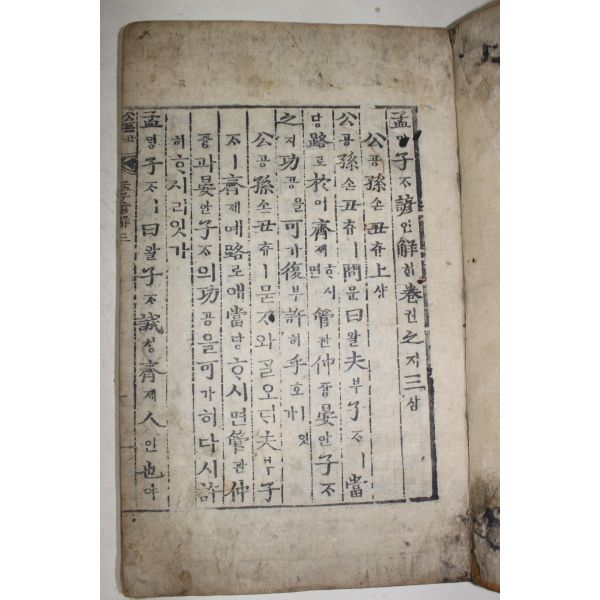 孟ᄆᆡᆼ子ᄌᆞ諺언解ᄒᆡ卷권之지三삼
公공孫손丑츄上샹
公공孫손丑츄ㅣ問문曰왈夫부子ᄌᆞㅣ當
당路로於어齊졔ᄒᆞ시면管관仲듕晏안子ᄌᆞ
之지功공을可가復부許허乎호ㅣ잇가
公공孫손丑츄ㅣ묻ᄌᆞ와ᄀᆞᆯ오ᄃᆡ夫부子
ᄌᆞㅣ齊졔예路로애當당ᄒᆞ시면管관仲
듕과晏안子ᄌᆞ의功공을可가히다시許
허ᄒᆞ시리잇가
孟ᄆᆡᆼ子ᄌᆞㅣ曰왈子ᄌᆞ誠셩齊졔人인也야
孟子諺解 三